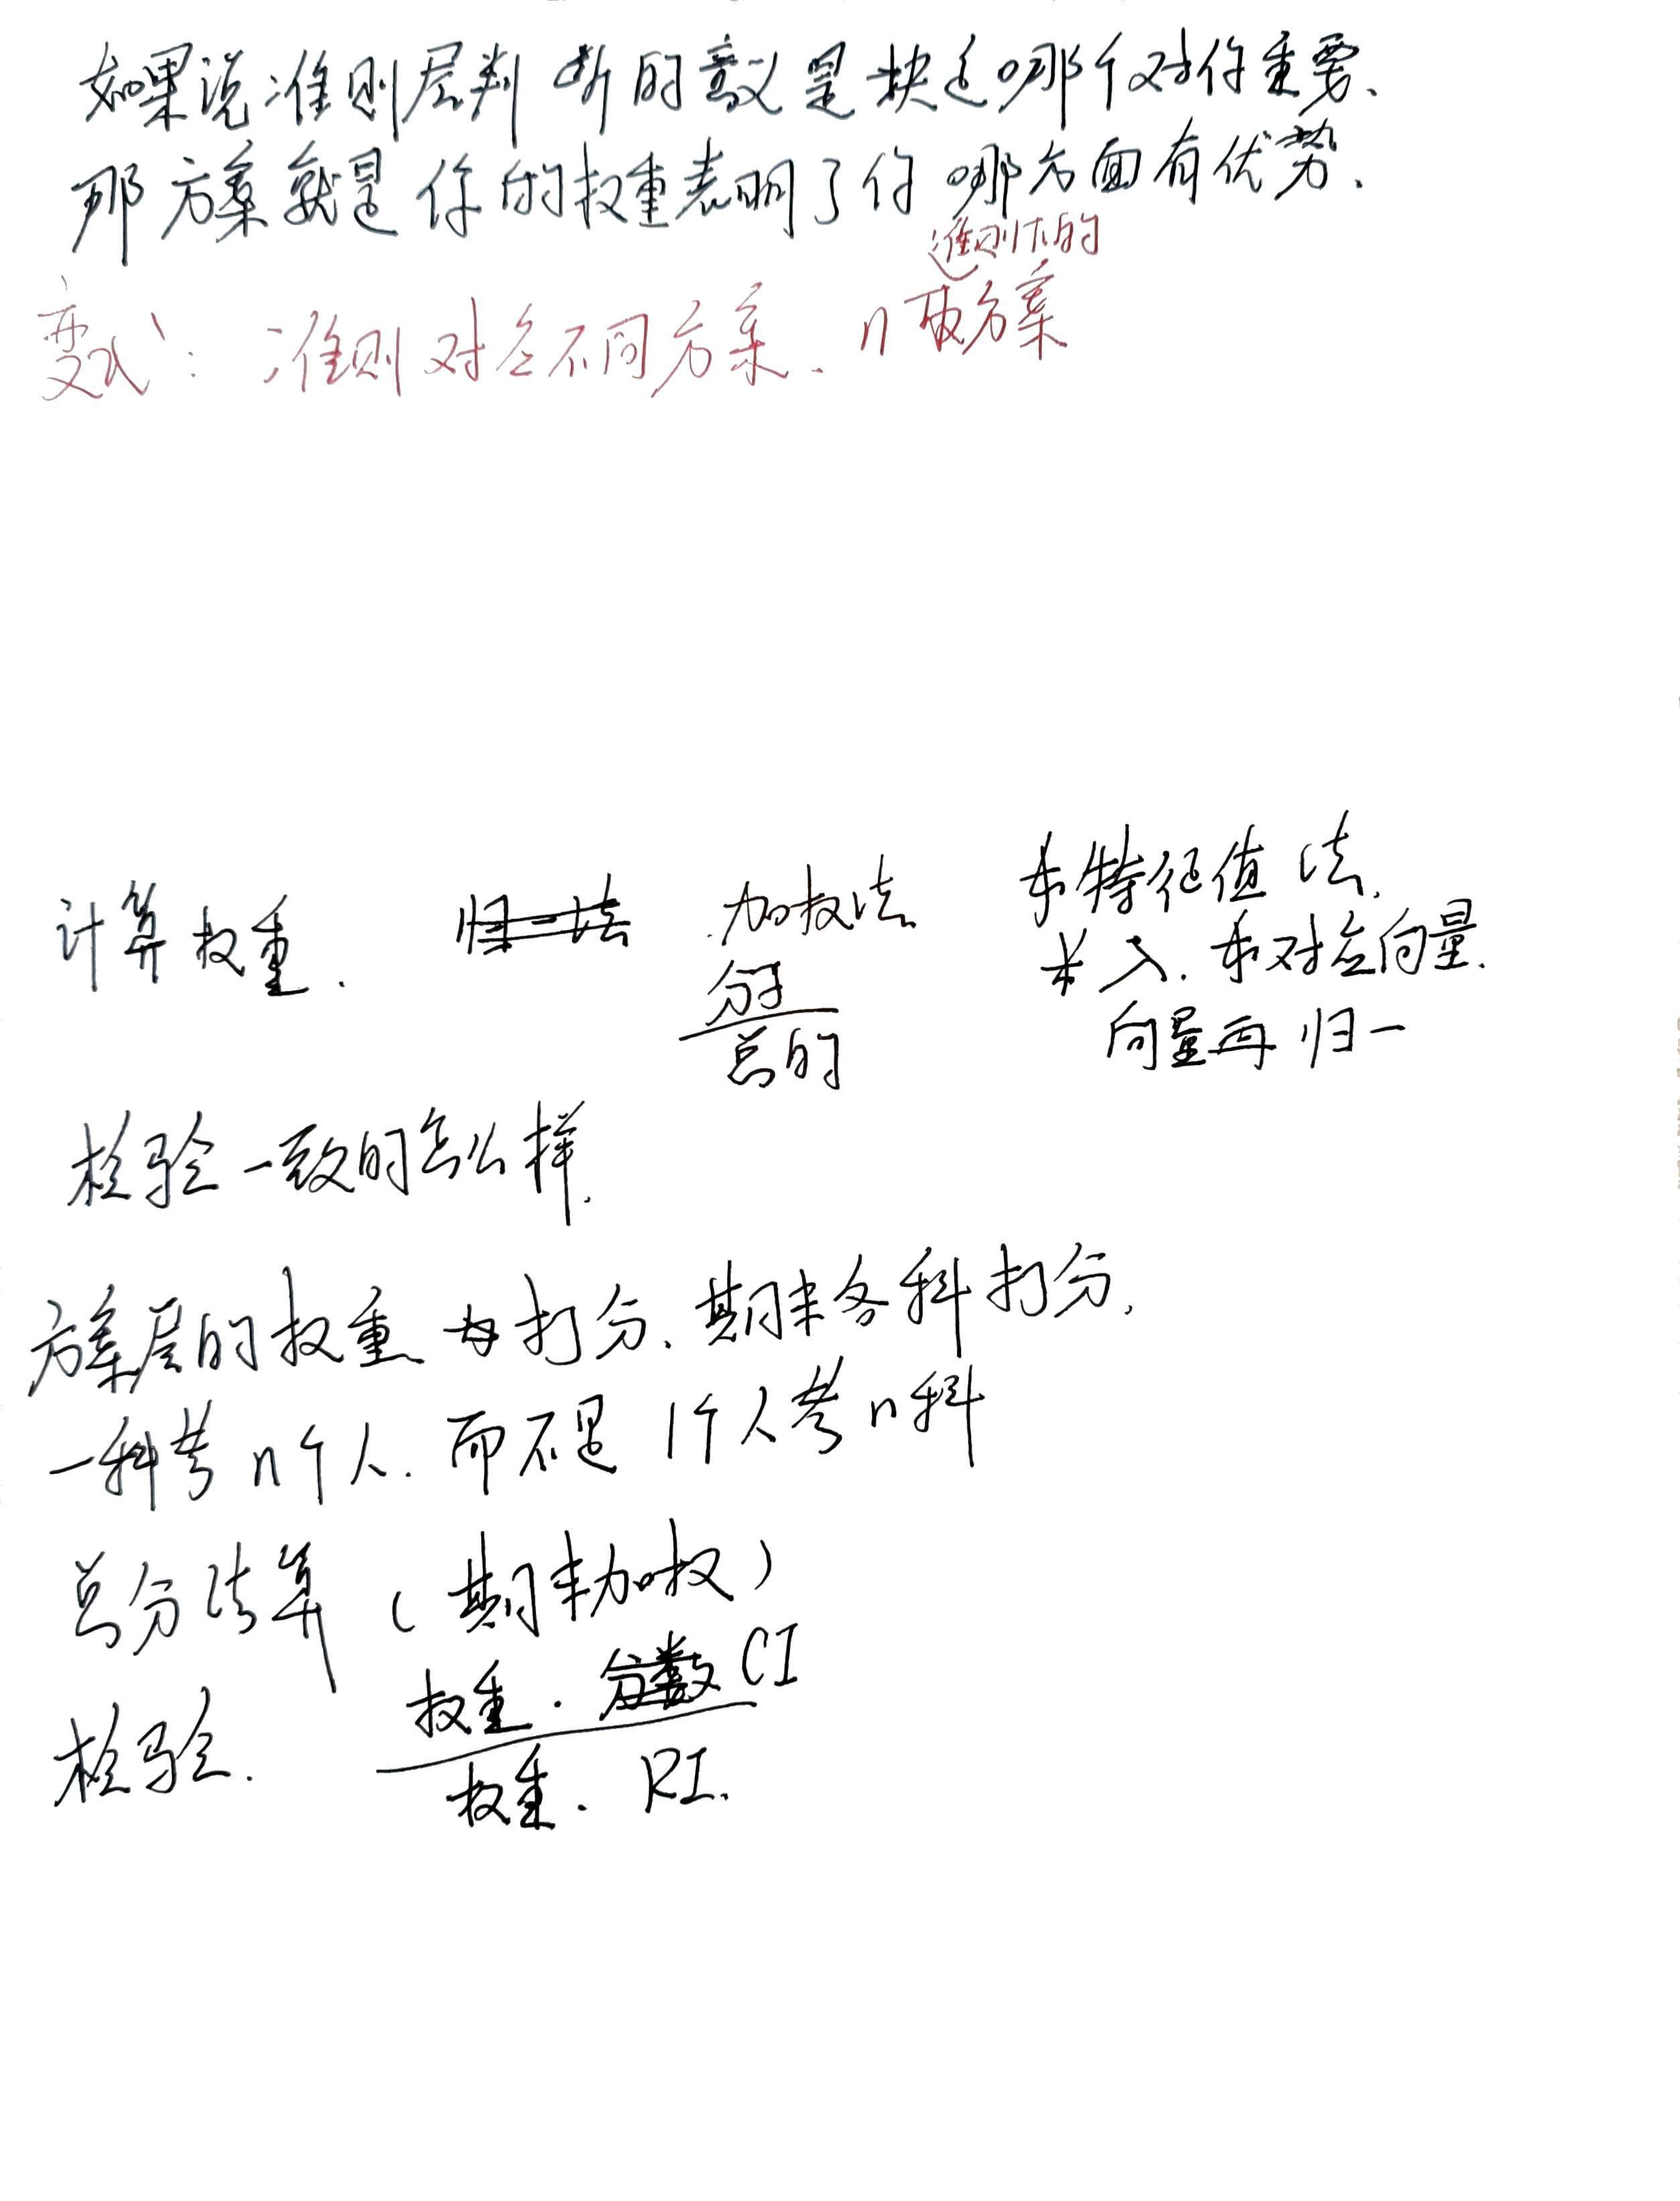 如果说准则层判断的意义是决定哪个对你重要、
那方案就是你的权重表明了你哪方面有优势.
准则下的
变式：准则对应不同方案. n 方案
计算权重. 加权法 求特征值法.
分子
总的
求λ. 求对应向量.
向量再归一
检验一致的怎么样.
方案层的权重 打分. 期末各科打分.
一科考n个人. 而不是1个人考n科
总分计算（期末加权）
检验. 权重 · CI
权重 · RI.